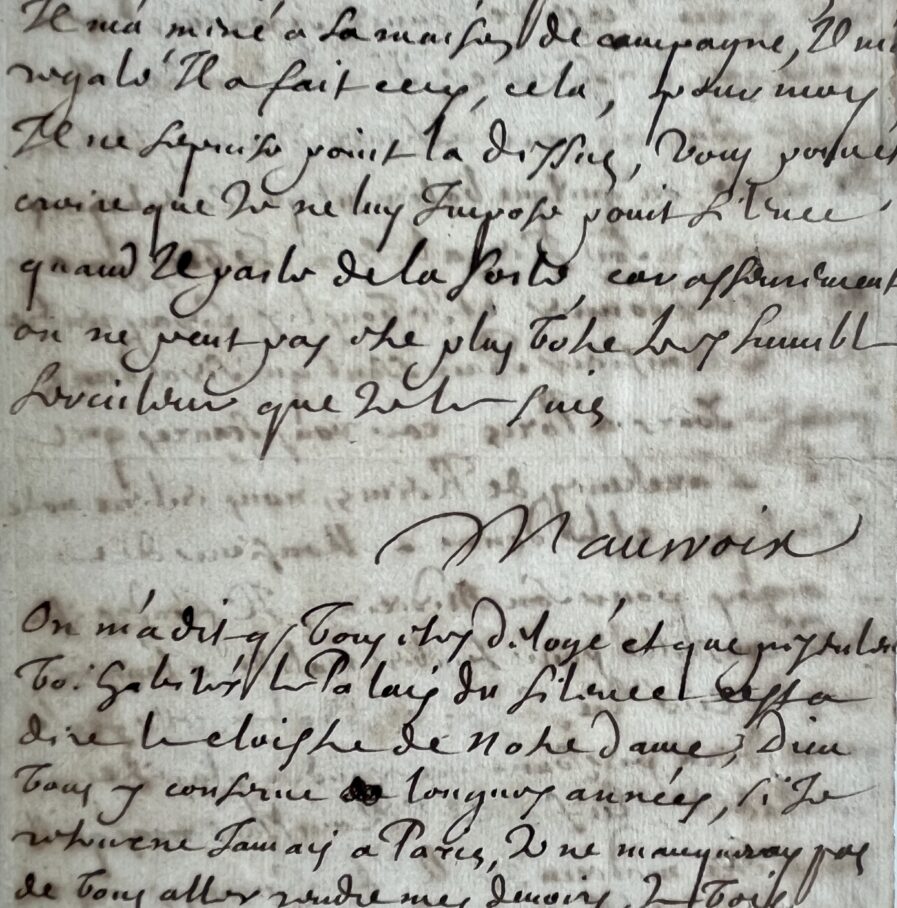 Il m'a mené a sa maison de campagne, Il m'a
regalé Il a fait cecy, cela, pour moy
Il ne s'epuise point la dessus, vous pouvés
croire que Je ne luy Impose point silence
quand Il parle de la sorte, car assurément
on ne peut pas estre plus vostre tres humble
serviteur que Je le suis
Maucroix
On m'a dit q vous estes délogé et que presentem
vo. habités le Palais du silence cest a
dire le cloistre de Nostre Dame, Dieu
vous y conserve longues années, si Je
retourne Jamais a Paris, Je ne manqueray pas
de vous aller rendre mes devoirs, Je vois